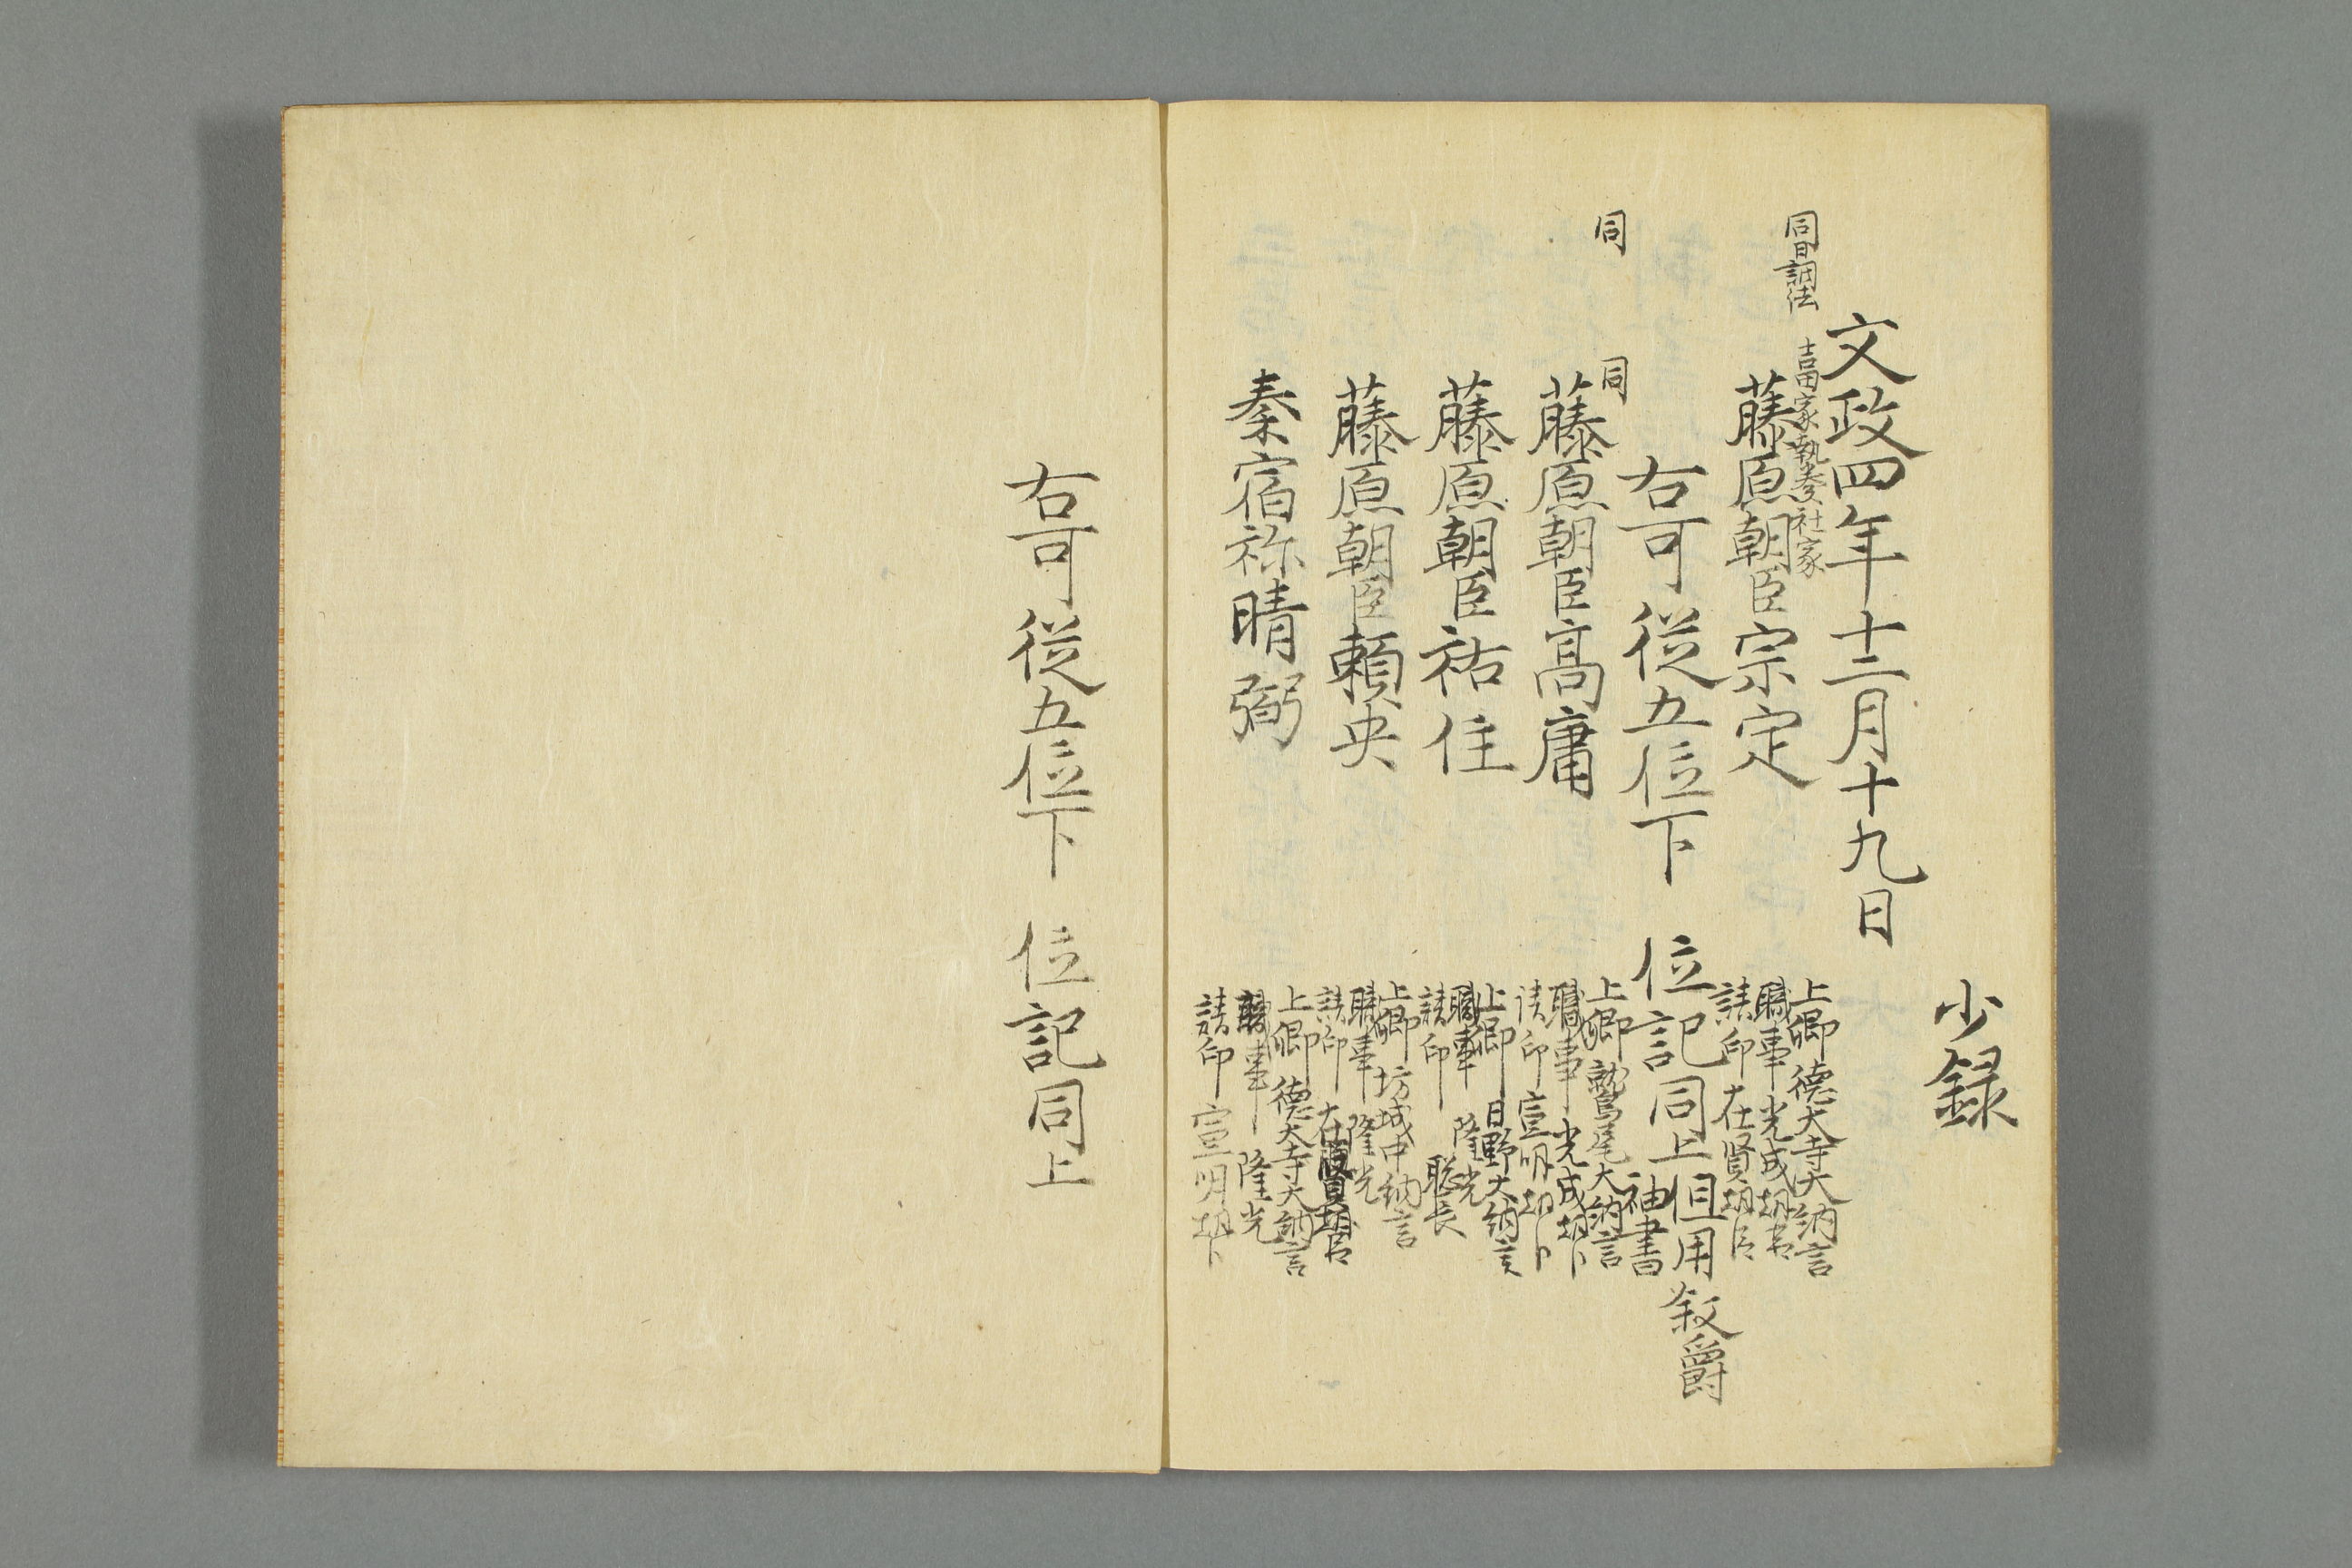 少録
文政四年十二月十九日
同日調法
吉田家執奏社家
藤原朝臣宗定
上卿 德大寺大納言
職事 光成朝臣
請印 在賢朝臣
右可從五位下 位記同上但用敘爵
袖書
同
同
藤原朝臣高庸
上卿 鷲尾大納言
職事 光成朝臣
請印 宣明朝臣
藤原朝臣祐住
上卿 日野大納言
職事 隆光
請印 聡長
藤原朝臣頼央
上卿 坊城中納言
職事 隆光
請印 在賢朝臣
秦宿祢晴弼
上卿 德大寺大納言
職事 隆光
請印 宣明朝臣
右可從五位下 位記同上